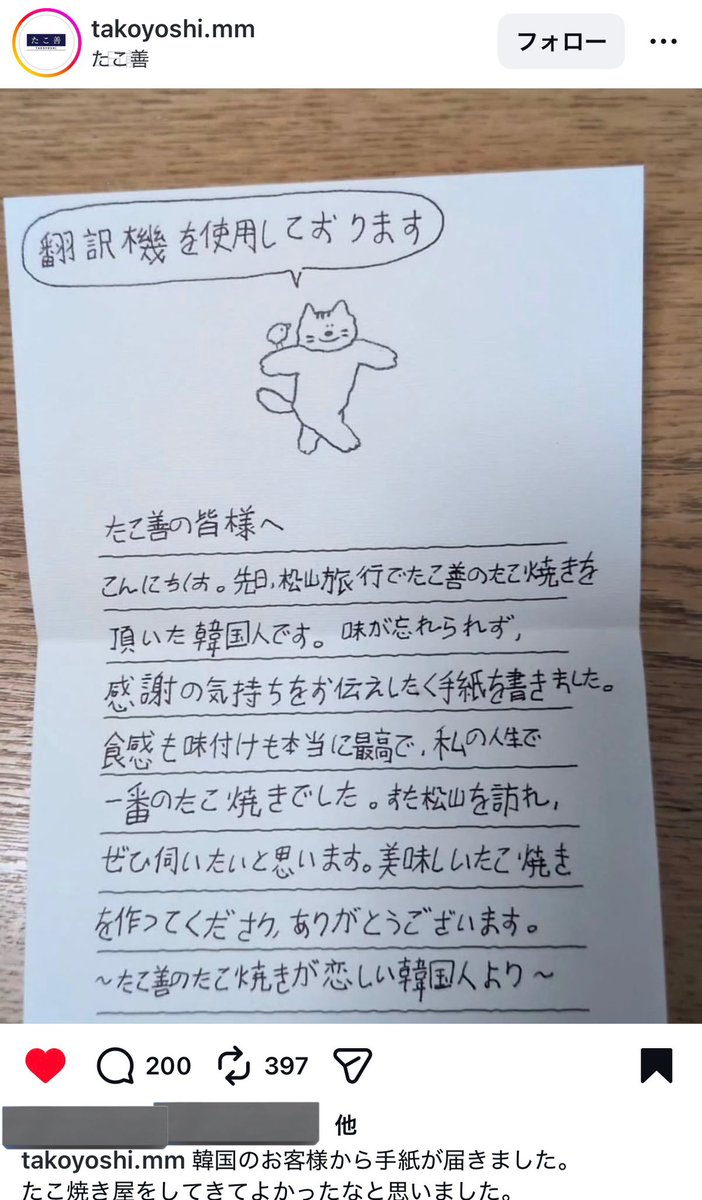 takoyoshi.mm
たこ善
フォロー
たこ善
TAKOYOSHI
翻訳機を使用しております
たこ善の皆様へ
こんにちは。先日、松山旅行でたこ善のたこ焼きを
頂いた韓国人です。味が忘れられず、
感謝の気持ちをお伝えしたく手紙を書きました。
食感も味付けも本当に最高で、私の人生で
一番のたこ焼きでした。また松山を訪れ、
ぜひ伺いたいと思います。美味しいたこ焼き
を作ってくださり、ありがとうございます。
~たこ善のたこ焼きが恋しい韓国人より~
200
397
他
takoyoshi.mm 韓国のお客様から手紙が届きました。
たこ焼き屋をしてきてよかったなと思いました。